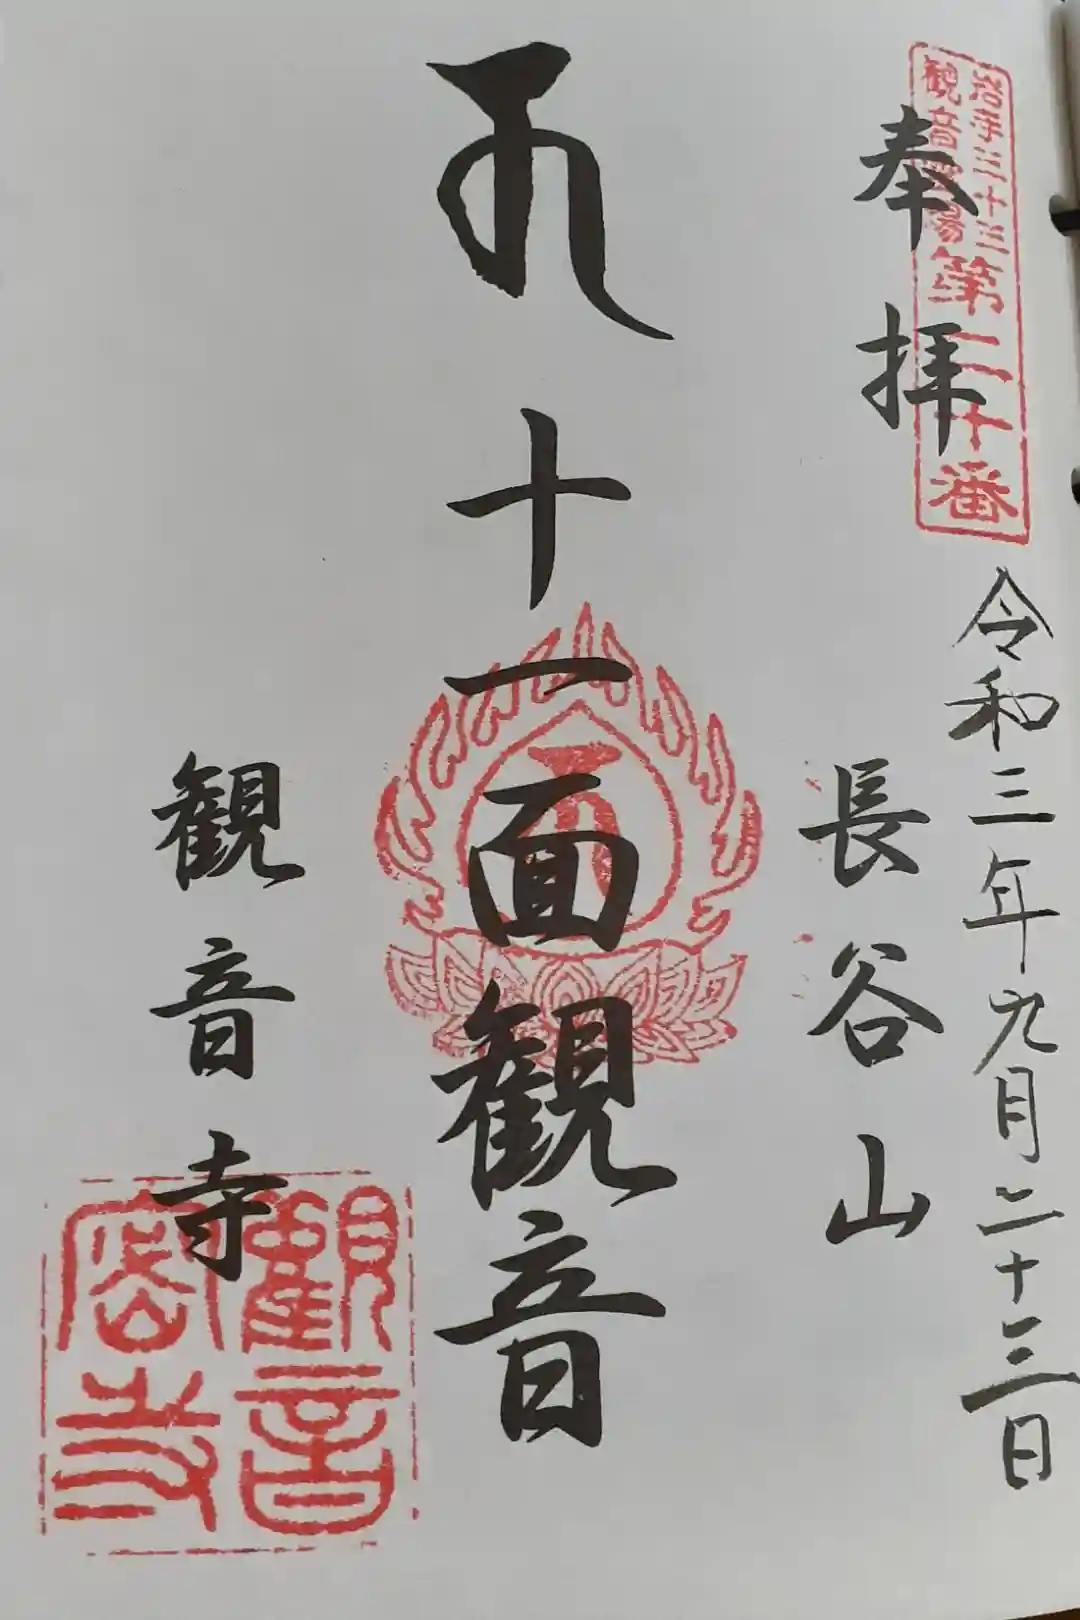 岩手三十三
観音霊場
第二十番
奉拝
令和三年九月二十三日
長谷山
𑖎
十一面観音
観音寺
觀音
密寺